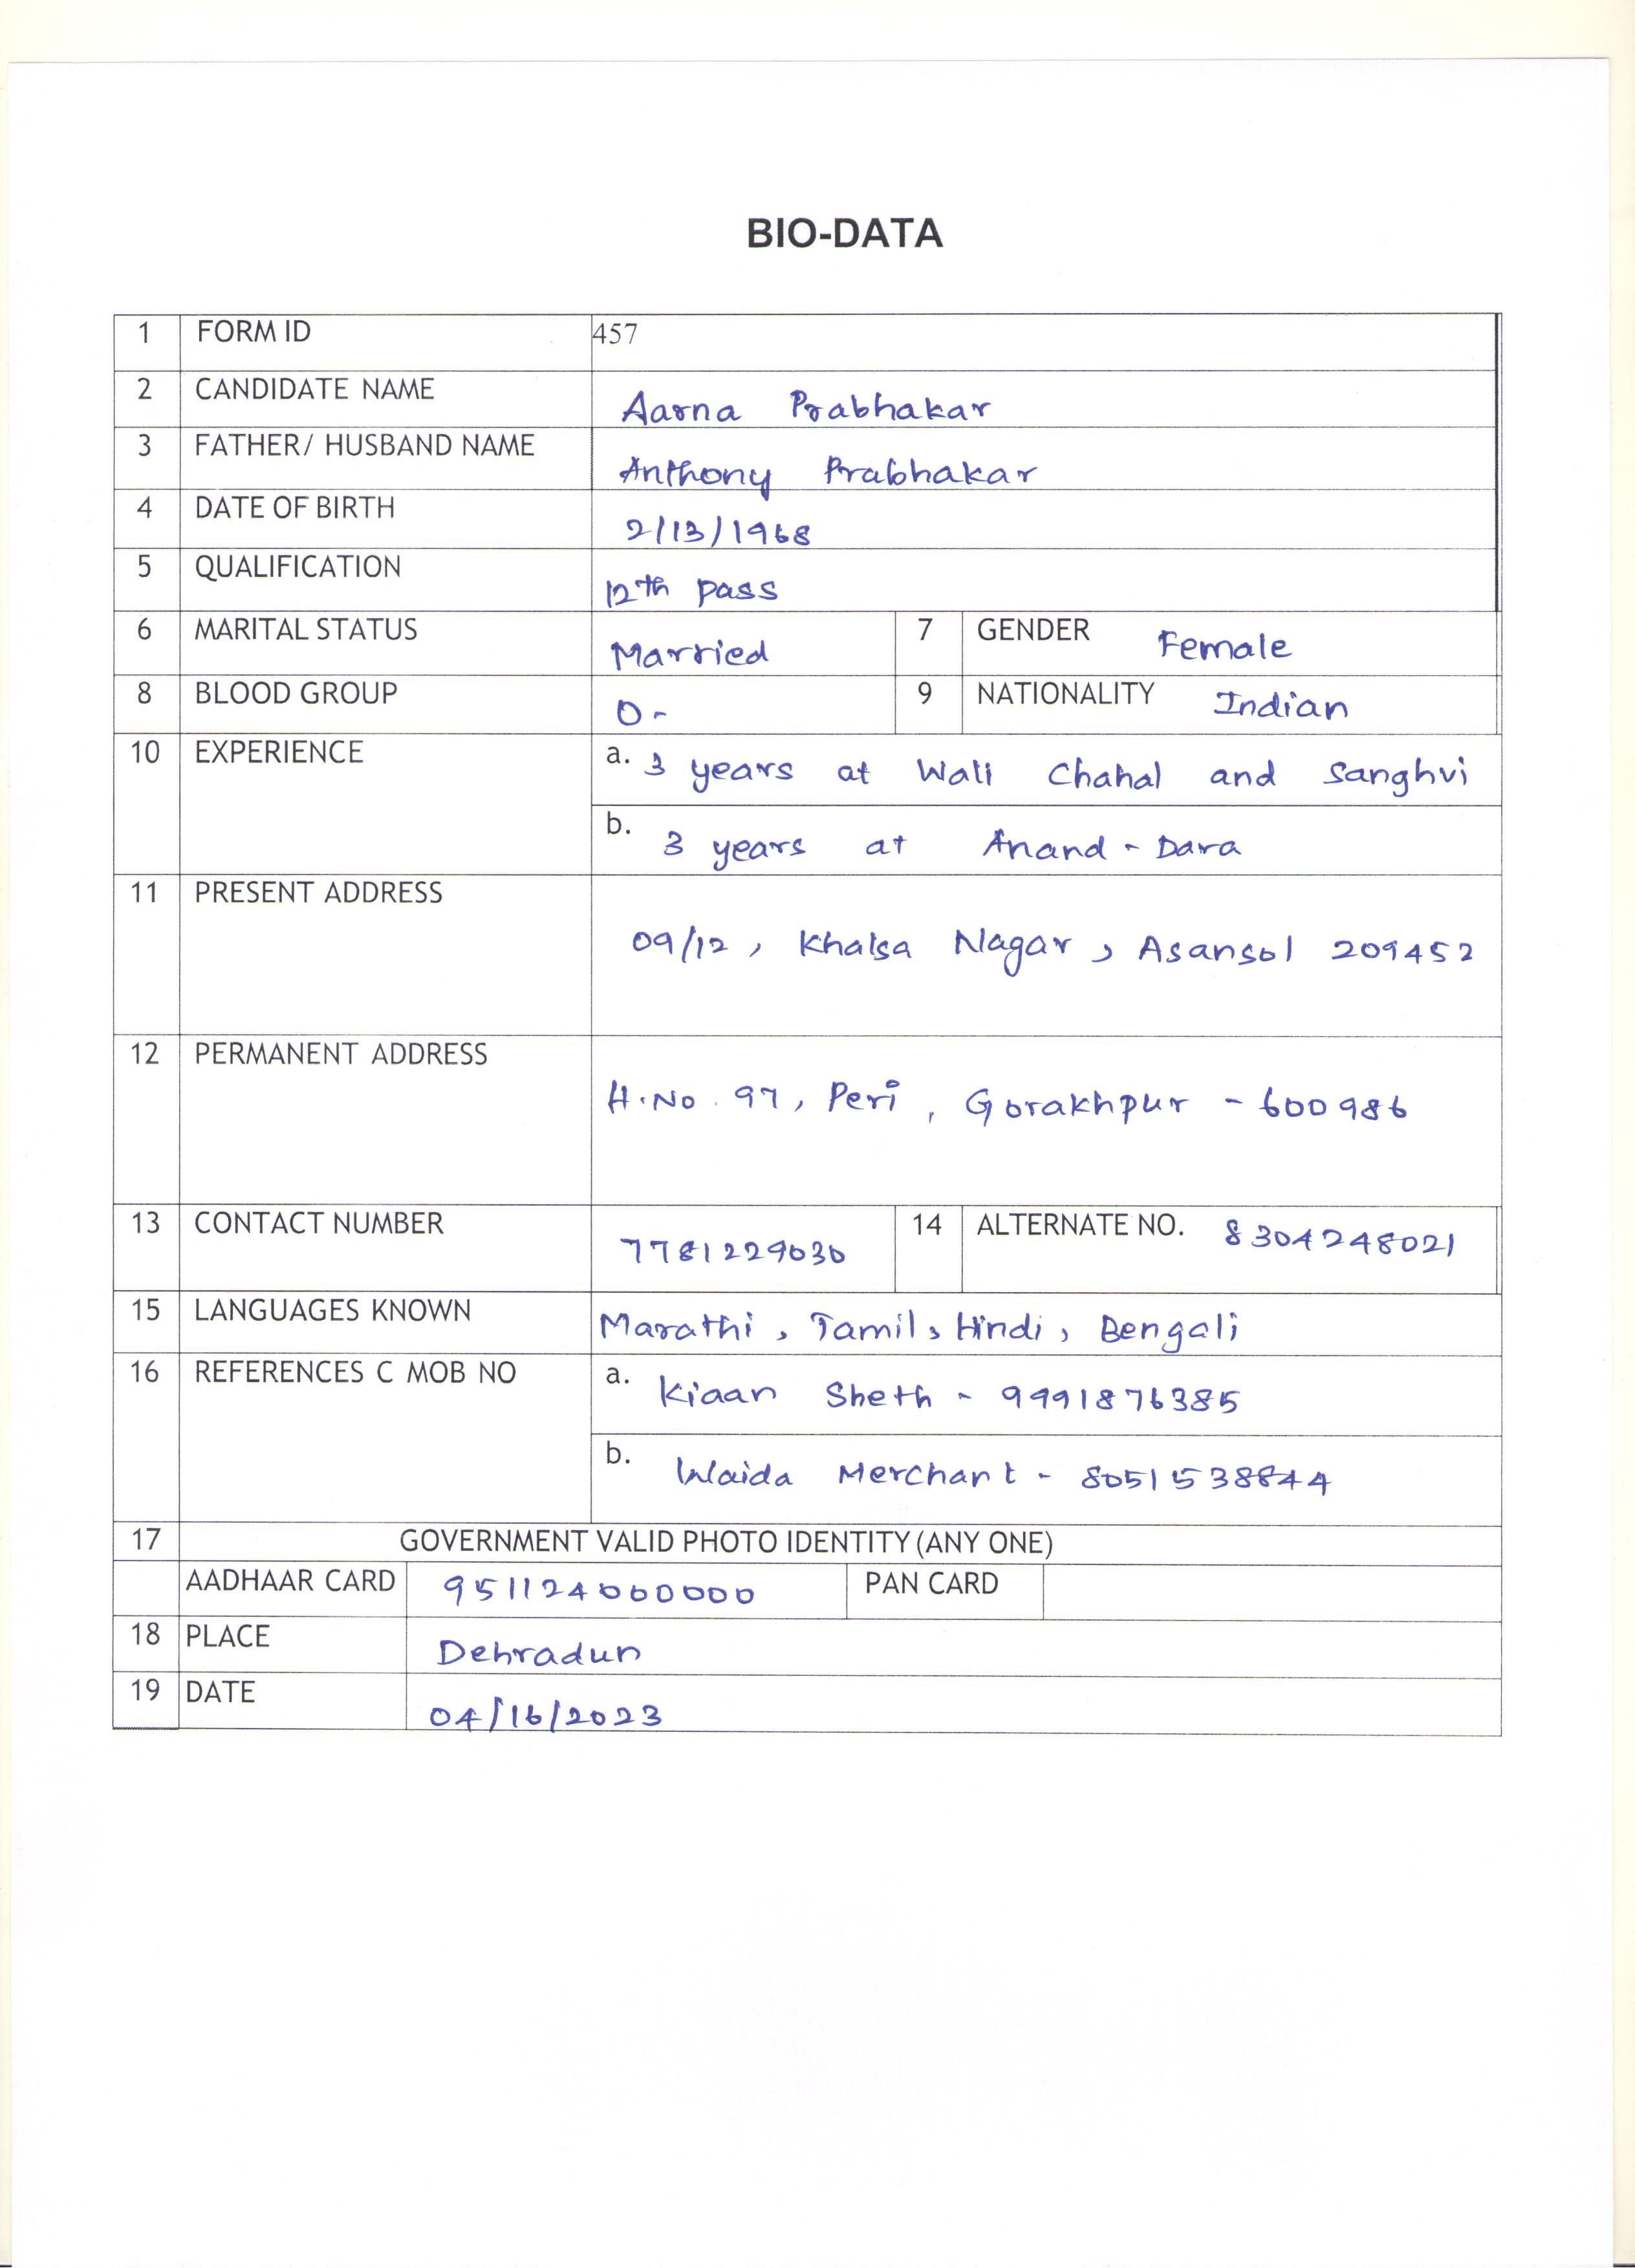 BIO-DATA
1 FORM ID 457
2 CANDIDATE NAME Aarna Prabhakar
3 FATHER/ HUSBAND NAME Anthony Prabhakar
4 DATE OF BIRTH 2/13/1968
5 QUALIFICATION 12th pass
6 MARITAL STATUS Married 7 GENDER Female
8 BLOOD GROUP O- 9 NATIONALITY Indian
10 EXPERIENCE a. 3 years at Wali Chahal and Sanghvi
b. 3 years at Anand - Dara
11 PRESENT ADDRESS 09/12, Khalsa Nagar, Asansol 209452
12 PERMANENT ADDRESS H.No. 97, Peri, Gorakhpur - 600986
13 CONTACT NUMBER 7781229030 14 ALTERNATE NO. 8304248021
15 LANGUAGES KNOWN Marathi, Tamil, Hindi, Bengali
16 REFERENCES C MOB NO a. Kiaan Sheth - 9991876385
b. Waida Merchant - 8051538844
17 GOVERNMENT VALID PHOTO IDENTITY (ANY ONE)
AADHAAR CARD 951124000000 PAN CARD
18 PLACE Dehradun
19 DATE 04/16/2023